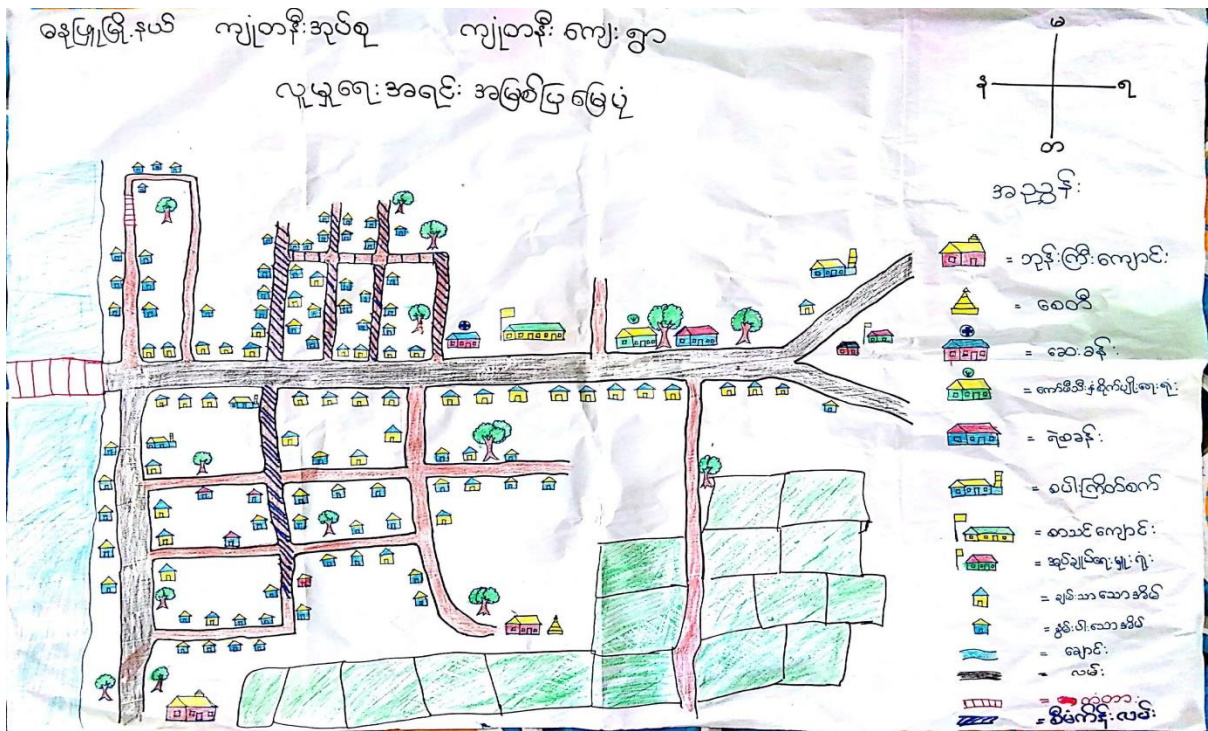 ဓနုဖြူမြို့နယ် ကျုံတနီးအုပ်စု ကျုံတနီးကျေးရွာ
လူမှုရေးအရင်းအမြစ်ပြမြေပုံ
မ
န
ရ
တ
အညွှန်း
= ဘုန်းကြီးကျောင်း
= စေတီ
= ဆေးခန်း
= ကော်မီတီနှင့်စိုက်ပျိုးရေးရုံး
= ရဲစခန်း
= စပါးကြိတ်စက်
= စာသင်ကျောင်း
= အုပ်ချုပ်ရေးမှူးရုံး
= ချမ်းသာသောအိမ်
= နွမ်းပါးသောအိမ်
= ချောင်း
= လမ်း
= တံတား
= စီမံကိန်းလမ်း